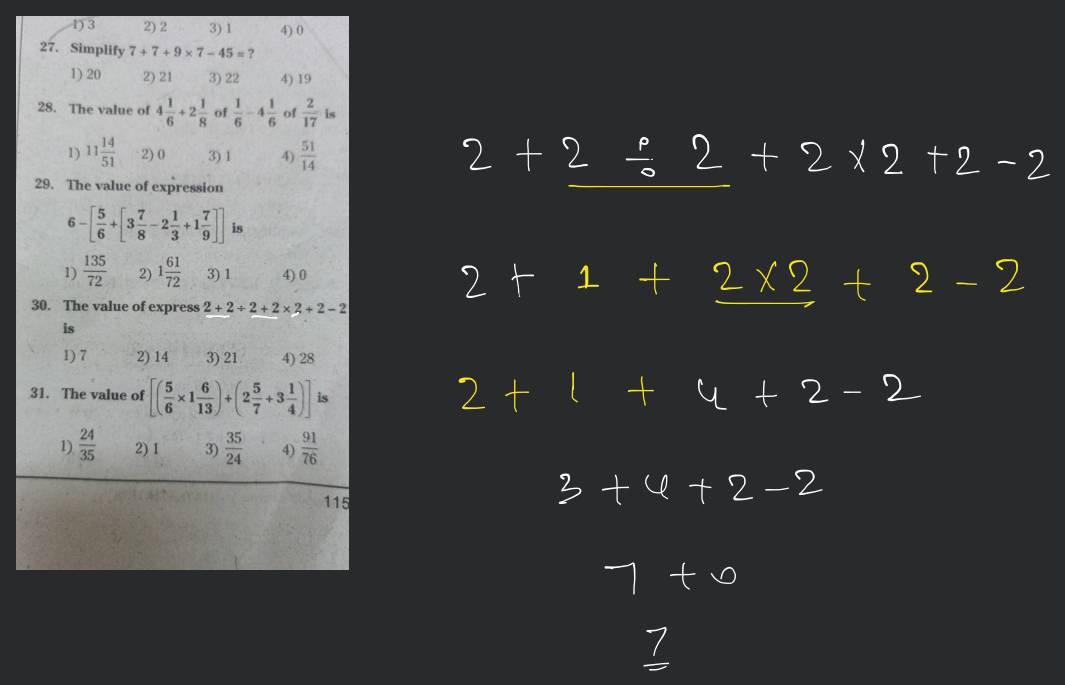 1) 3 2) 2 3) 1 4) 0
27. Simplify 7 + 7 + 9 × 7 – 45 = ?
1) 20 2) 21 3) 22 4) 19
28. The value of 4 1/6 + 2 1/8 of 1/6 - 4 1/6 of 2/17 is
1) 11 14/51 2) 0 3) 1 4) 51/14
29. The value of expression
6 – [5/6 + [3 7/8 – 2 1/3 + 1 7/9]] is
1) 135/72 2) 1 61/72 3) 1 4) 0
30. The value of express 2 + 2 ÷ 2 + 2 × 2 + 2 – 2
is
1) 7 2) 14 3) 21 4) 28
31. The value of [(5/6 × 1 6/13) + (2 5/7 + 3 1/4)] is
1) 24/35 2) 1 3) 35/24 4) 91/76
115
2 + 2 ÷ 2 + 2 × 2 + 2 - 2
2 + 1 + 2 × 2 + 2 - 2
2 + 1 + 4 + 2 - 2
3 + 4 + 2 - 2
7 + 0
7